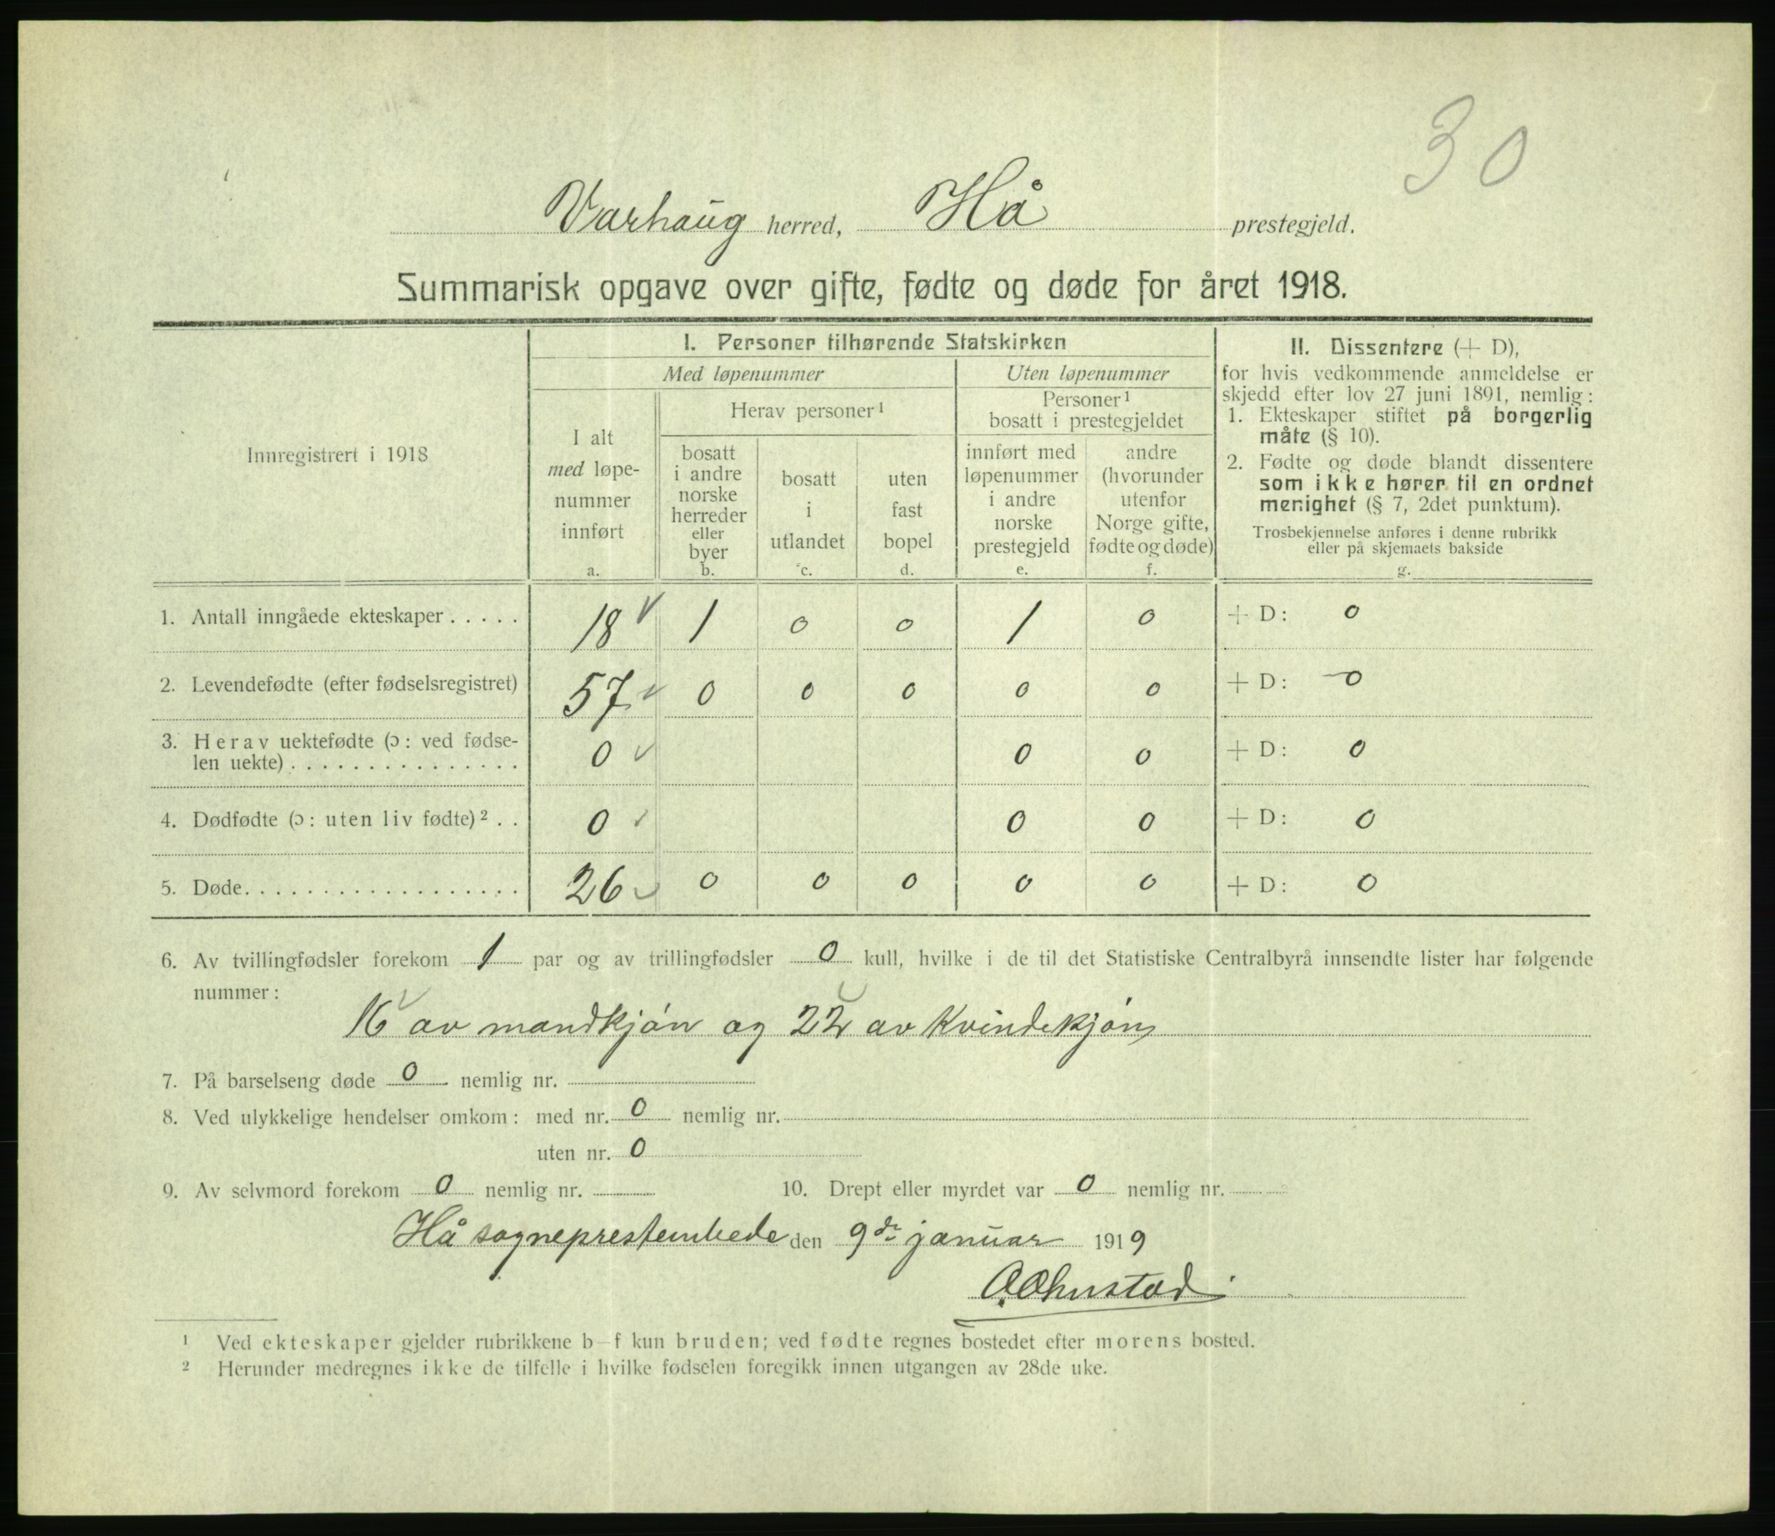 30
Varhaug herred, Hå prestegjeld.
Summarisk opgave over gifte, fødte og døde for året 1918.
Innregistrert i 1918
I. Personer tilhørende Statskirken
Med løpenummer
Uten løpenummer
I alt
med løpe-
nummer
innført
a.
Herav personer¹
bosatt
i andre
norske
herreder
eller
byer
b.
bosatt
i
utlandet
c.
uten
fast
bopel
d.
Personer¹
bosatt i prestegjeldet
innført med
løpenummer
i andre
norske
prestegjeld
e.
andre
(hvorunder
utenfor
Norge gifte,
fødte og døde)
f.
II. Dissentere (+ D),
for hvis vedkommende anmeldelse er
skjedd efter lov 27 juni 1891, nemlig:
1. Ekteskaper stiftet på borgerlig
måte (§ 10).
2. Fødte og døde blandt dissentere
som ikke hører til en ordnet
menighet (§ 7, 2det punktum).
Trosbekjennelse anføres i denne rubrikk
eller på skjemaets bakside
g.
1. Antall inngåede ekteskaper . . . . . 18 √ 1 0 0 1 0 + D: 0
2. Levendefødte (efter fødselsregistret) 57 √ 0 0 0 0 0 + D: 0
3. Herav uektefødte (ɔ: ved fødse-
len uekte) . . . . . . . . . . . . . . . 0 √ 0 0 + D: 0
4. Dødfødte (ɔ: uten liv fødte)² . . 0 √ 0 0 + D: 0
5. Døde. . . . . . . . . . . . . . . . . . 26 √ 0 0 0 0 0 + D: 0
6. Av tvillingfødsler forekom 1 par og av trillingfødsler 0 kull, hvilke i de til det Statistiske Centralbyrå innsendte lister har følgende
nummer:
16 √ av mandkjøn og 22 √ av Kvindekjøn,
7. På barselseng døde 0 nemlig nr.
8. Ved ulykkelige hendelser omkom: med nr. 0 nemlig nr.
uten nr. 0
9. Av selvmord forekom 0 nemlig nr. 10. Drept eller myrdet var 0 nemlig nr.
Hå sogneprestembede den 9de januar 1919
¹ Ved ekteskaper gjelder rubrikkene b–f kun bruden; ved fødte regnes bostedet efter morens bosted.
² Herunder medregnes ikke de tilfelle i hvilke fødselen foregikk innen utgangen av 28de uke.